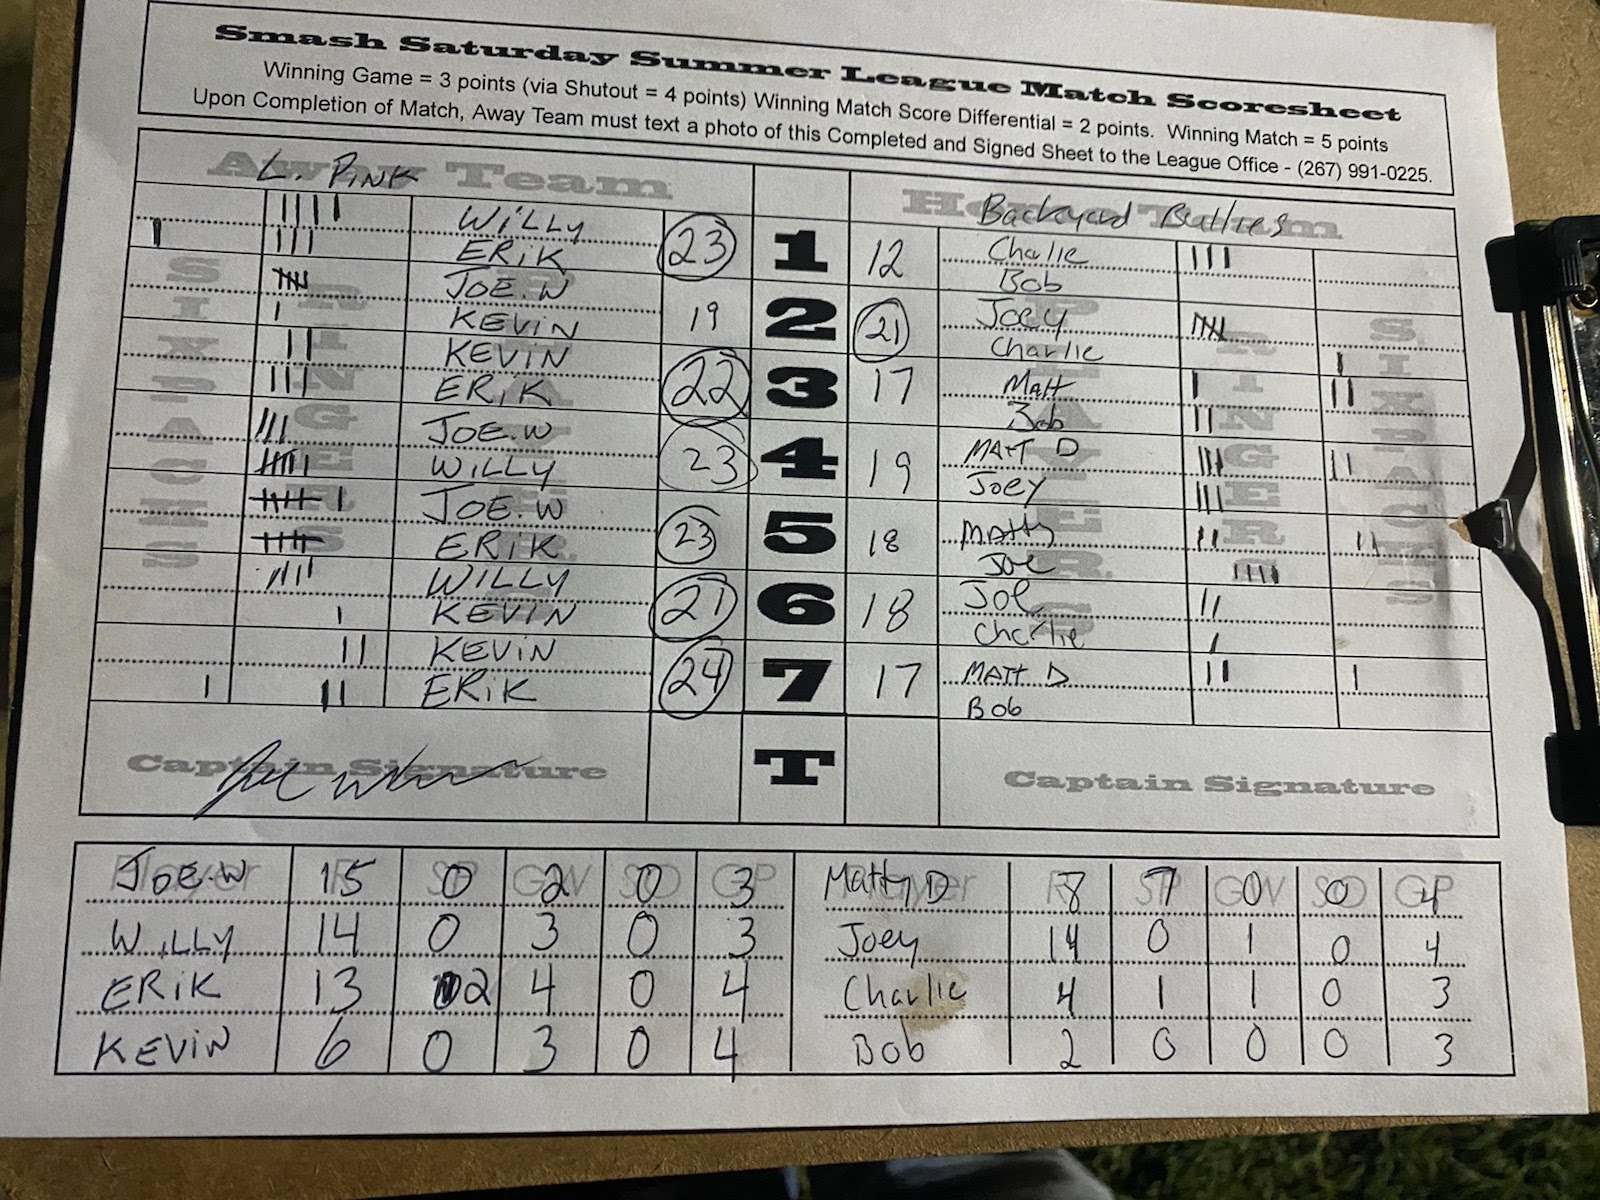 Smash Saturday Summer League Match Scoresheet
Winning Game = 3 points (via Shutout = 4 points) Winning Match Score Differential = 2 points. Winning Match = 5 points
Upon Completion of Match, Away Team must text a photo of this Completed and Signed Sheet to the League Office - (267) 991-0225.
Away Team Home Team
L. PINK Backyard Bullies
SIXPACKS RINGERS PLAYERS PLAYERS RINGERS SIXPACKS
WILLY
ERIK 23 1 12 Charlie
Bob
JOE.W
KEVIN 19 2 21 Joey
Charlie
KEVIN
ERIK 22 3 17 Matt
Bob
JOE.W
WILLY 23 4 19 MATT D
Joey
JOE.W
ERIK 23 5 18 Matty
Joe
WILLY
KEVIN 21 6 18 Joe
Charlie
KEVIN
ERIK 24 7 17 MATT D
Bob
Captain Signature T Captain Signature
Player R SP GW SO GP Player R SP GW SO GP
JOE.W 15 0 2 0 3 Matty D 8 7 0 0 4
WILLY 14 0 3 0 3 Joey 14 0 1 0 4
ERIK 13 2 4 0 4 Charlie 4 1 1 0 3
KEVIN 6 0 3 0 4 Bob 2 0 0 0 3